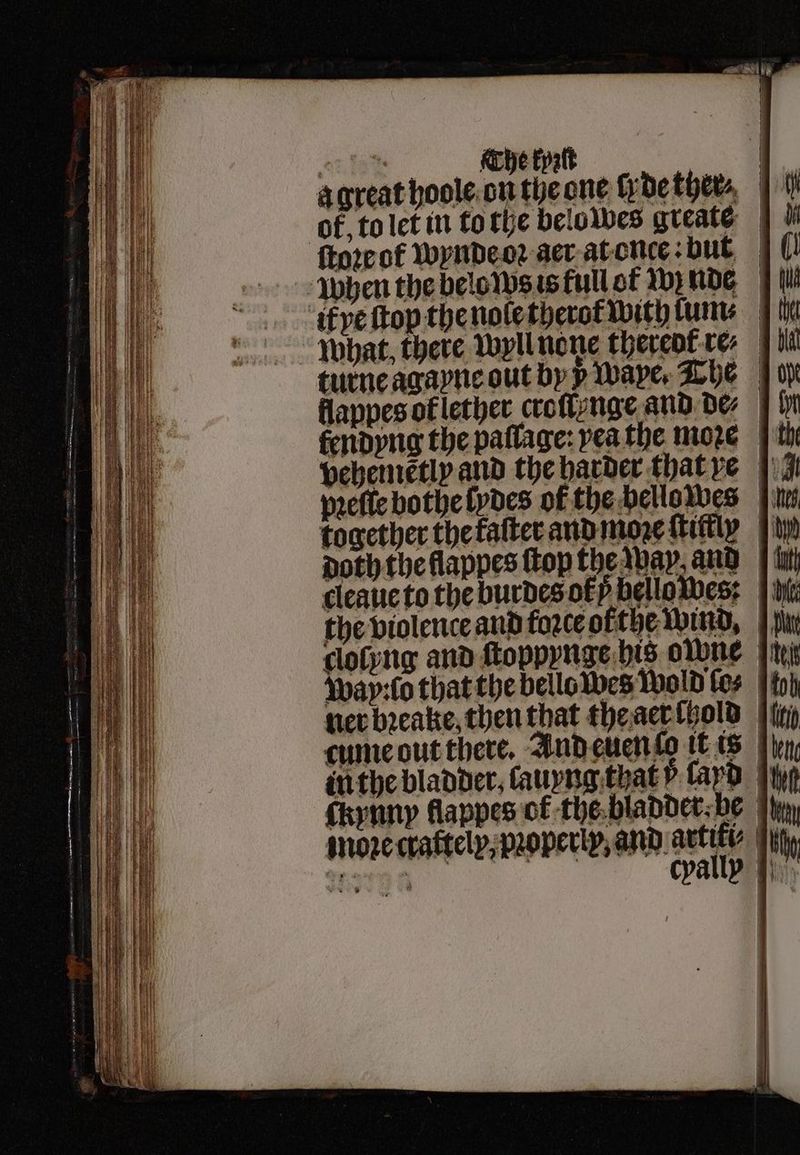 The fyrst
a great hoole, on the one syde ther⸗
of, to let in to the belowes greate
store of wynde or aer at once : but
when the belows is full of wynde
if ye stop the nose therof with sum⸗
what, there wyll none thereof re⸗
turne agayne out by þͤ waye. The
flappes of lether crossynge and de⸗
fendyng the passage: yea the more
vehemētly and the harder that ye
presse bothe sydes of the bellowes
together the faster and more stiffly
doth the flappes stop the way, and
cleaue to the burdes of þͤ bellowes:
the violence and force of the wind,
closyng and stoppynge his owne
way: so that the bellowes wold soo⸗
ner breake, then that the aer shold
cume out there. And euen so it is
in the bladder, sauyng that þͤ sayd
skynny flappes of the bladder, be
more craftely, properly, and artifi⸗
cyally